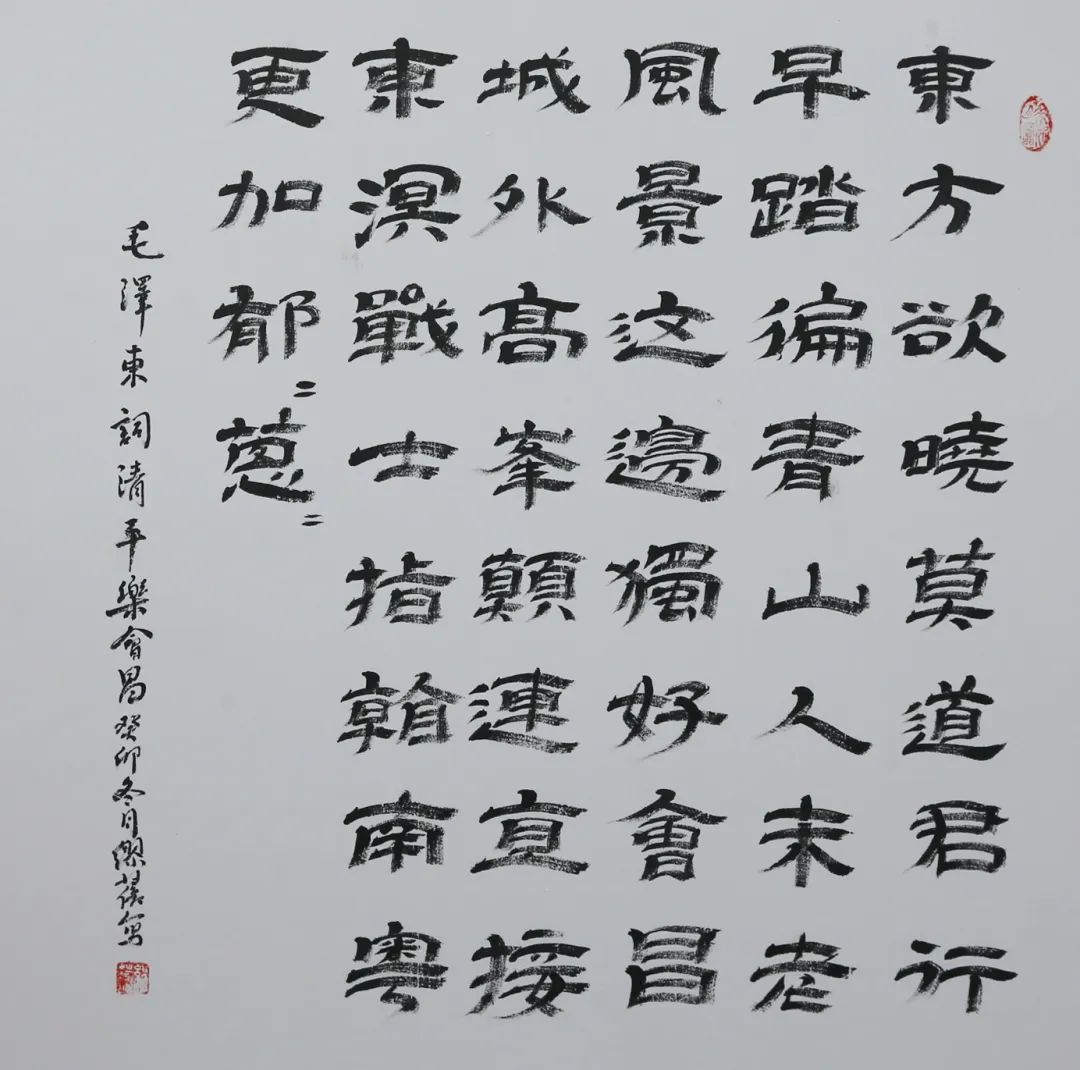 東方欲曉莫道君行
早踏徧青山人未老
風景这邊獨好會昌
城外高峯顛連直接
東溟戰士指看南粤
更加郁〻蔥〻
毛澤東詞清平樂會昌癸卯冬月寫